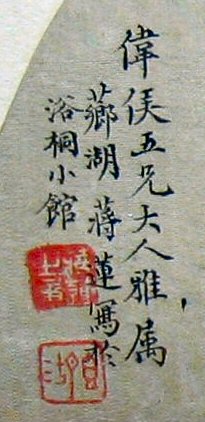 偉侯五兄大人雅属
薌湖蔣蓮寫於
浴桐小館